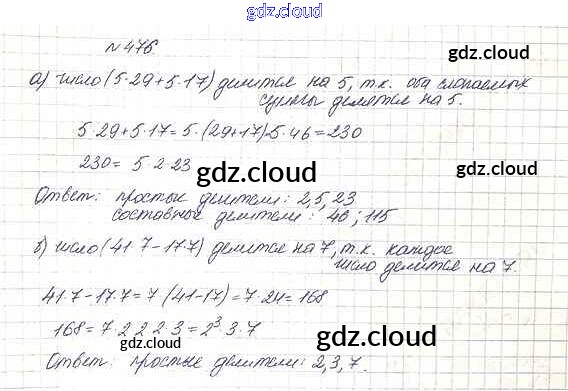 gdz.cloud
№476
gdz.cloud
а) число (5·29+5·17) делится на 5, т.к. оба слагаемых
суммы делятся на 5.
5·29+5·17=5·(29+17)=5·46=230
230= 5·2·23
gdz.cloud
Ответ: простые делители: 2,5,23
составные делители: 46; 115
gdz.cloud
б) число (41·7-17·7) делится на 7, т.к. каждое
число делится на 7.
41·7-17·7=7·(41-17)=7·24=168
168=7·2·2·2·3=2³·3·7
gdz.cloud
gdz.cloud
Ответ: простые делители: 2,3,7.